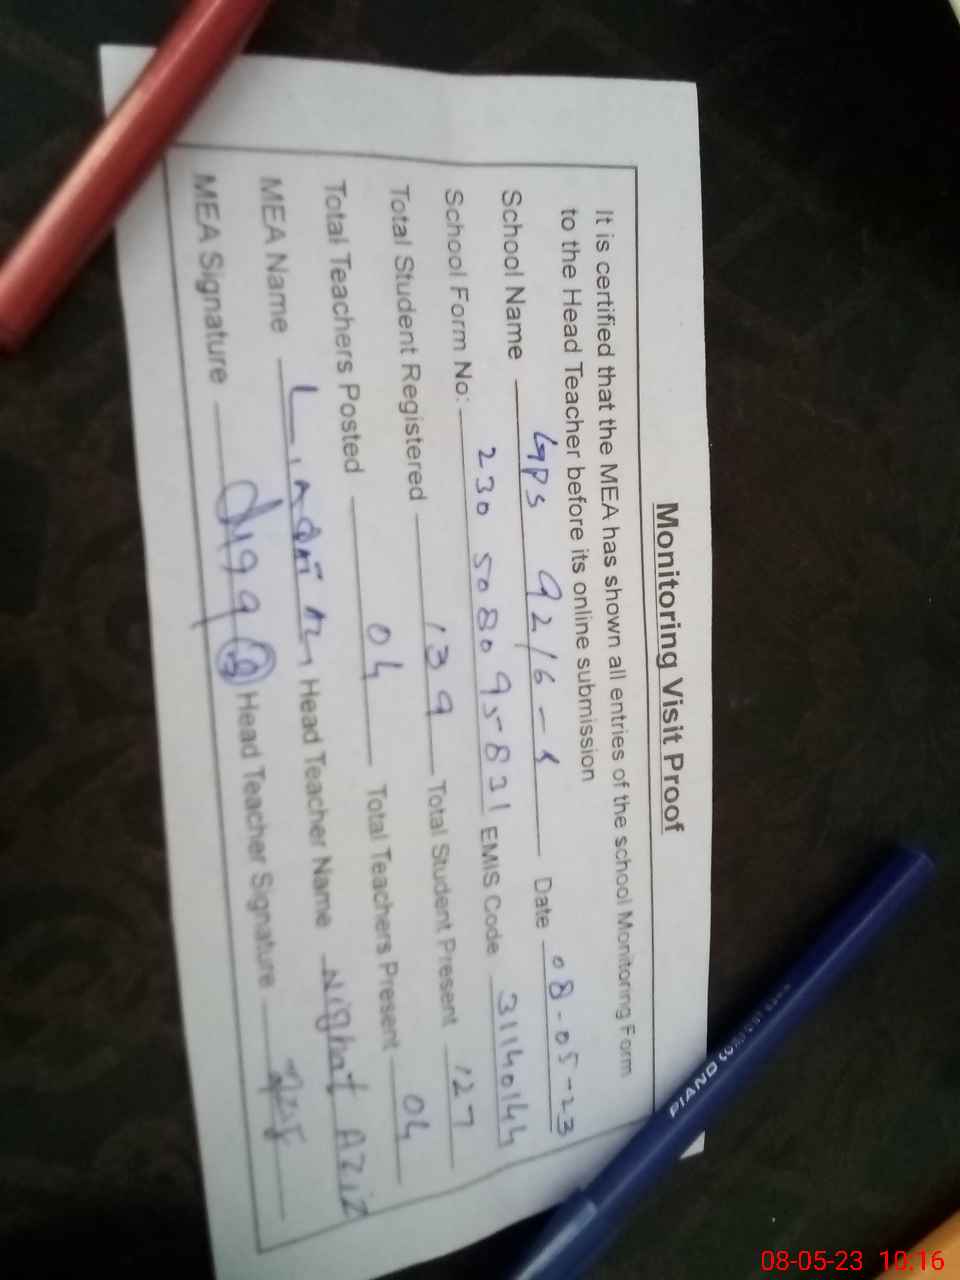 Monitoring Visit Proof
It is certified that the MEA has shown all entries of the school Monitoring Form
to the Head Teacher before its online submission
School Name GPS 92/6-R Date 08-05-23
School Form No: 230 5080 95831 EMIS Code 31140144
Total Student Registered 139 Total Student Present 127
Total Teachers Posted 04 Total Teachers Present 04
MEA Name Head Teacher Name Nighat Aziz
MEA Signature Head Teacher Signature
PIANO
08-05-23 10:16